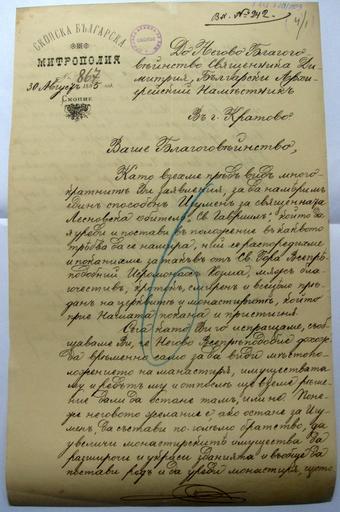 Вх. № 212.
СКОПСКА БЪЛГАРСКА
МИТРОПОЛИЯ
№ 867
30 Августъ 1895
Скопие
До Негово Благого-
вѣинство Священника Ди-
митрия, Български Архи-
ерейский Намѣстникъ
Въ г. Кратово
Ваше Благоговѣинство,
Като взехме прѣдъ видъ много-
кратнитѣ Ви заявления, за да намѣримъ
единъ способенъ Игуменъ за священната
Лесновска обитель „Св. Гавриилъ“, който да
я уреди и постави въ положение въ каквото
трѣбва да се намира, ний се распоредихме
и поканихме за такъвъ отъ Св. Гора Всепрѣ-
подобний Иеромонахъ Козма, мѫжъ бла-
гочестивъ, кротъкъ, смиренъ и всецѣло прѣ-
данъ на църквитѣ и монастиритѣ, който
прие Нашата покана и пристигна.
Сега като Ви го испращаме, съоб-
щаваме Ви, че Негово Всепрѣподобие дохож-
да врѣменно само за да види мѣстопо-
ложението на манастиря, имуществата
му и редътъ му и отпослѣ ще вземе рѣше-
ние дали да остане тамъ, или не. Поне-
же неговото желание е ако остане за Игу-
менъ, да състави по-голѣмо братство, да
увеличи монастирскитѣ имущества да
разшироче и украси зданията и въобще да
постави редъ и да уреди монастиря, щото